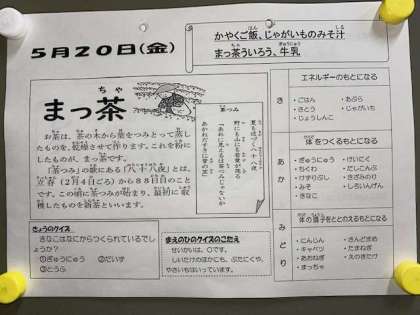 5月20日(金)
かやくご飯、じゃがいものみそ汁
まっ茶ういろう、牛乳
まっ茶
お茶は、茶の木から葉をつみとって蒸し
たものを、乾燥させて作ります。これを粉に
したものが、まっ茶です。
「茶つみ」の歌にある「八十八夜」とは、
立春（2月4日ごろ）から88日目のこと
です。この頃に茶つみが始まり、最初に収
穫したものを新茶といいます。
茶つみ
夏も近づく八十八夜
野にも山にも若葉が茂る
「あれに見えるは茶つみじゃないか
あかねだすきに菅の笠」
きょうのクイズ
きなこはなにからつくられているでし
ょうか？
①ぎゅうにゅう ②だいず
③とうふ
まえのひのクイズのこたえ
せいかいは、○です。
しいたけのほかにも、ぶたにくや、
やさいもはいっています。
き
エネルギーのもとになる
・ごはん ・あぶら
・さとう ・じゃがいも
・じょうしんこ
あか
体をつくるもとになる
・ぎゅうにゅう ・けいにく
・ちくわ ・だしこんぶ
・けずりぶし ・きざみのり
・みそ ・しろいんげん
・きなこ
みどり
体の調子をととのえるもとになる
・にんじん ・きんときまめ
・キャベツ ・たまねぎ
・あおねぎ ・えのきたけ
・まっちゃ